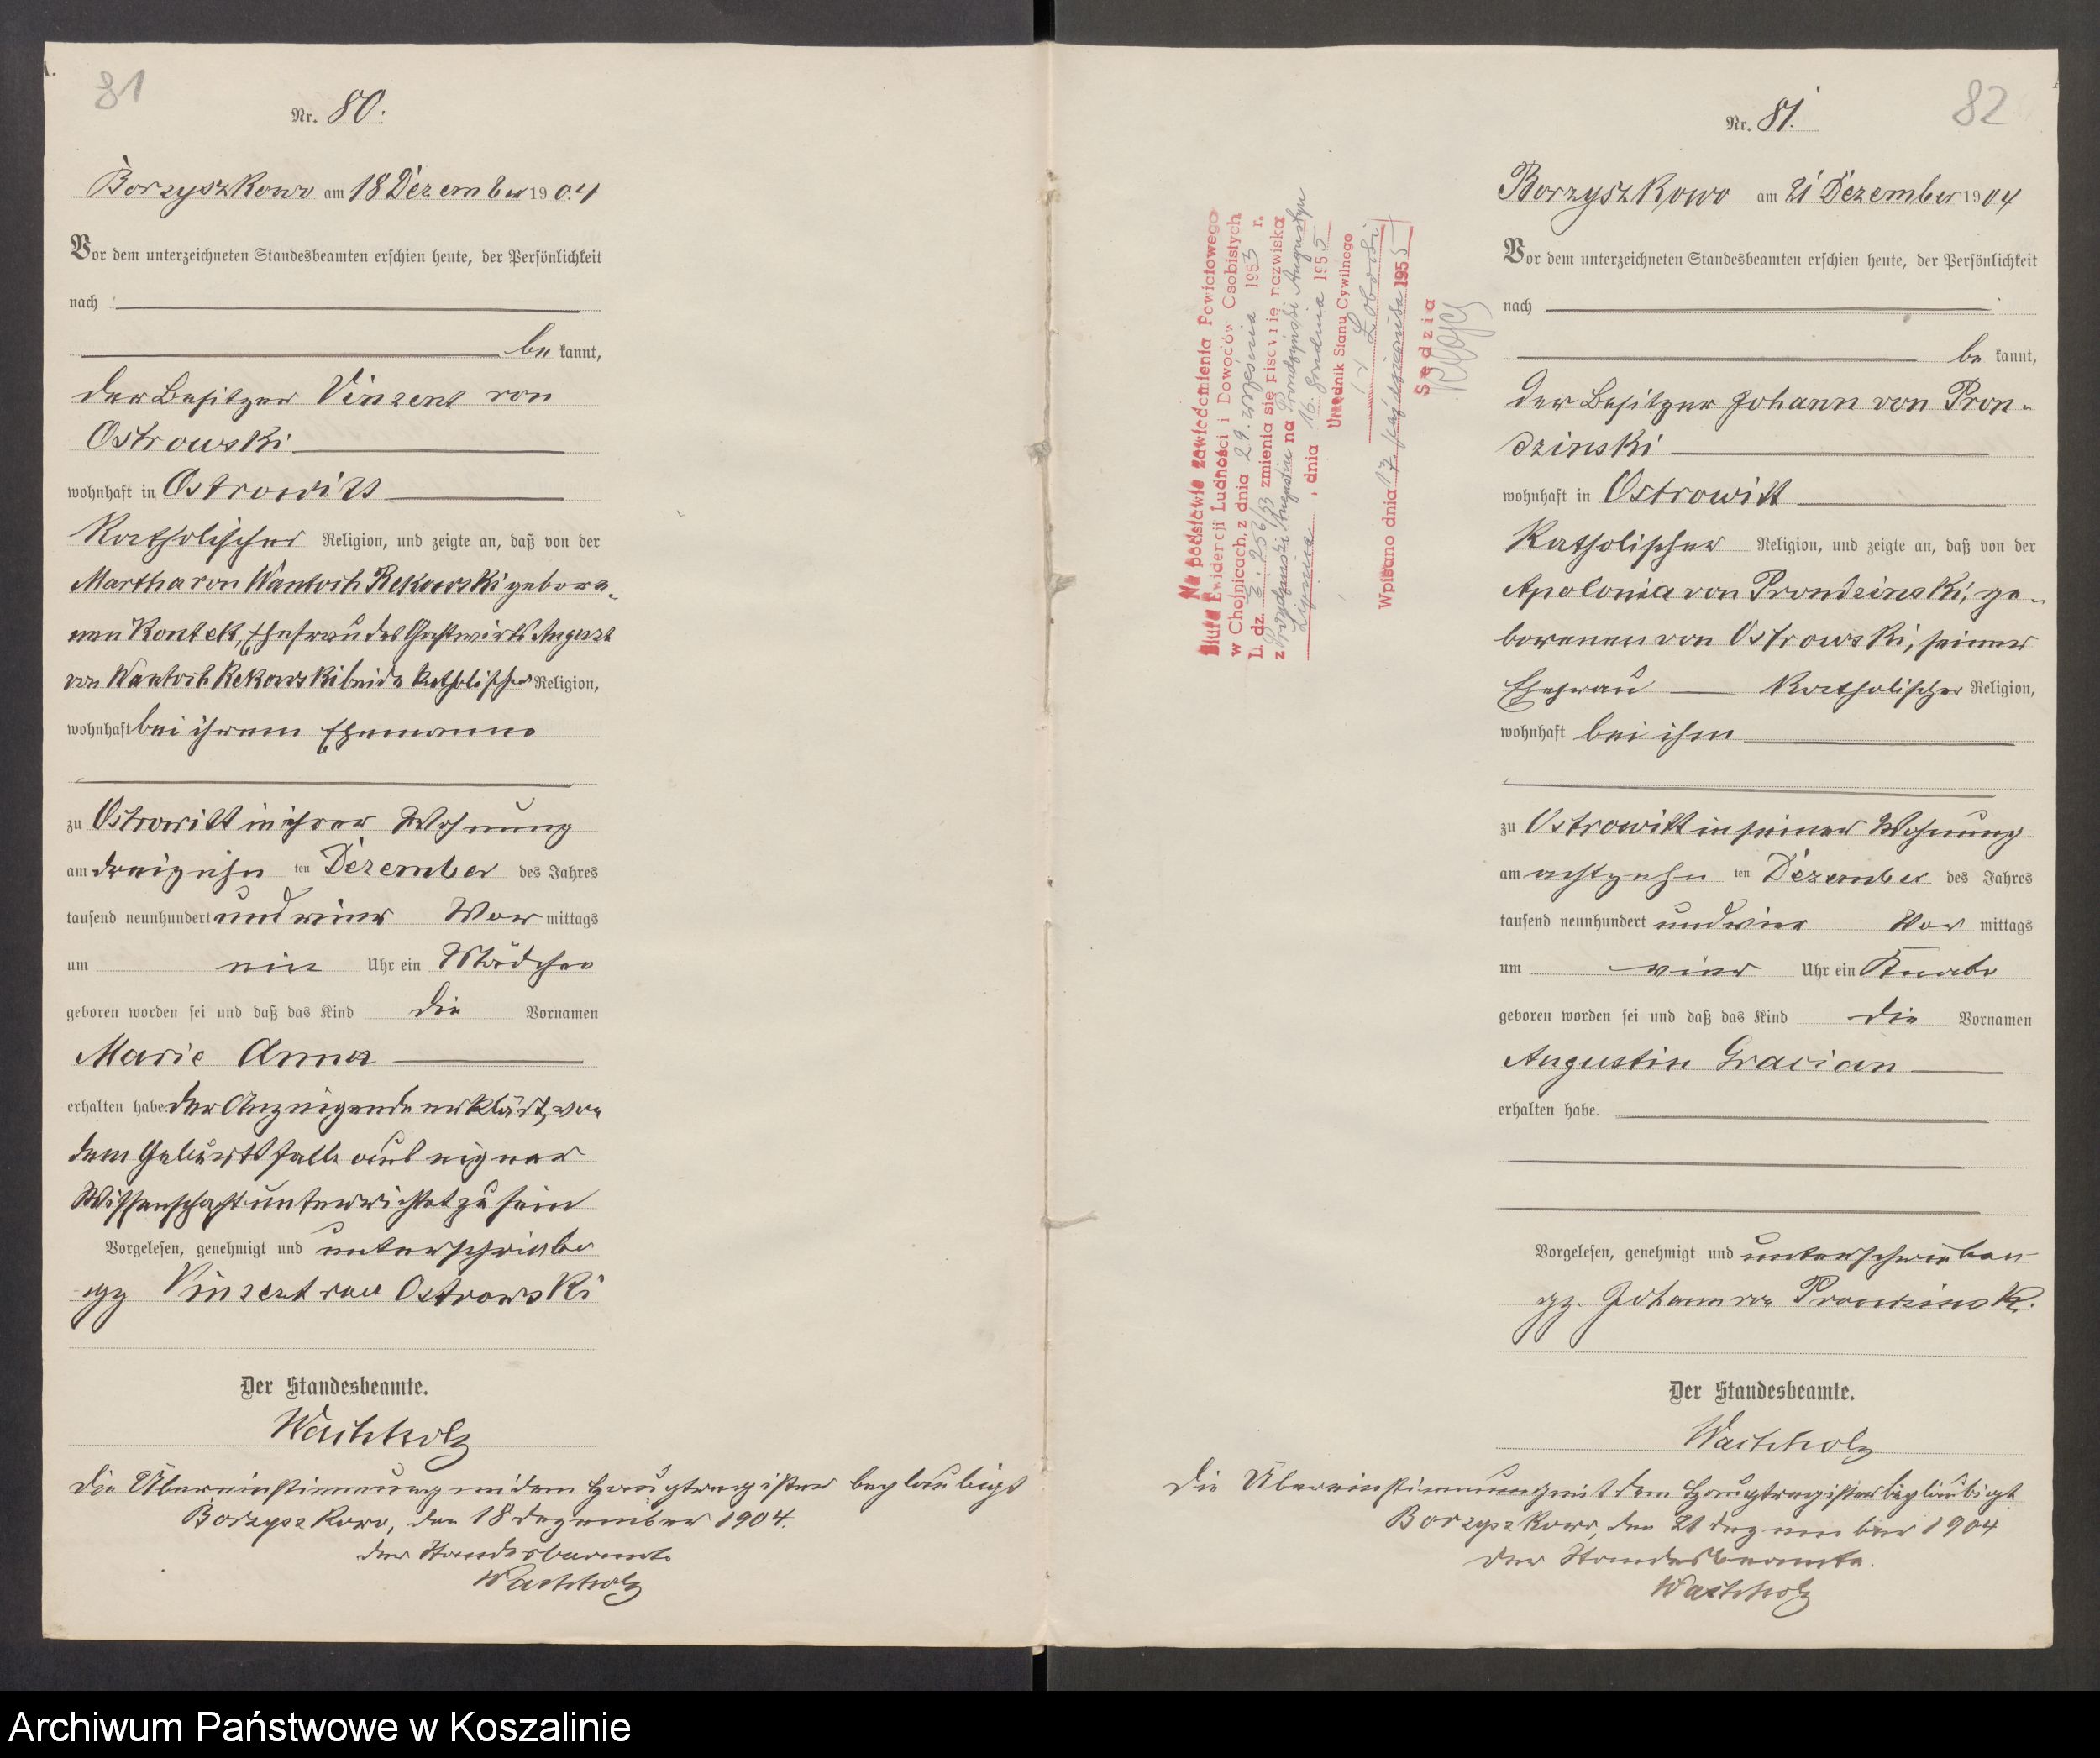 81
Nr. 80.
Borzyszkowo am 18 Dezember 1904
Vor dem unterzeichneten Standesbeamten erschien heute, der Persönlichkeit
nach
be kannt,
der Besitzer Vinzent von
Ostrowski
wohnhaft in Ostrowitt
katholischer Religion, und zeigte an, daß von der
Martha von Wantoch Rekowski gebore-
nen Kontek, Ehefrau des Gastwirts August
von Wantoch Rekowski beide katholischer Religion,
wohnhaft bei ihrem Ehemanne
zu Ostrowitt in ihrer Wohnung
am dreizehn ten Dezember des Jahres
tausend neunhundert und vier Vor mittags
um ein Uhr ein Mädchen
geboren worden sei und daß das Kind die Vornamen
Marie Anna
erhalten habe. der Anzeigende erklärt, von
dem Geburtsfalle aus eigner
Wissenschaft unterrichtet zu sein
Vorgelesen, genehmigt und unterschriebe
gz Vinzent von Ostrowski
Der Standesbeamte.
Wachholz
Die Übereinstimmung mi dem Hauptregister beglaubigt
Borzyszkowo, den 18 Dezember 1904.
Der Standesbeamte
Wachholz
82
Nr. 81.
Borzyszkowo am 21 Dezember 1904
Vor dem unterzeichneten Standesbeamten erschien heute, der Persönlichkeit
nach
be kannt,
der Besitzer Johann von Pron-
dzinski
wohnhaft in Ostrowitt
katholischer Religion, und zeigte an, daß von der
Apolonia von Prondzinski, ge-
borenen von Ostrowski, seiner
Ehefrau katholischer Religion,
wohnhaft bei ihm
zu Ostrowitt in seiner Wohnung
am achtzehn ten Dezember des Jahres
tausend neunhundert und vier Vor mittags
um vier Uhr ein Knabe
geboren worden sei und daß das Kind die Vornamen
Augustin Gracian
erhalten habe.
Vorgelesen, genehmigt und unterschrieben
gz. Johann von Prondzinski.
Der Standesbeamte.
Wachholz
Die Übereinstimmung mit dem Hauptregister beglaubigt
Borzyszkowo, den 21 Dezember 1904
Der Standesbeamte.
Wachholz
Na podstawie zawiadomienia Powiatowego
Biura Ewidencji Ludności i Dowodów Osobistych
w Chojnicach, z dnia 29. września 1953 r.
L. dz. 256/53 zmienia się pisownię nazwiska
z Augustin na Prondzyński Augustyn
Lipnica, dnia 16. grudnia 1955
Urzędnik Stanu Cywilnego
Wpisano dnia 17 października 1955
Sędzia
Archiwum Państwowe w Koszalinie